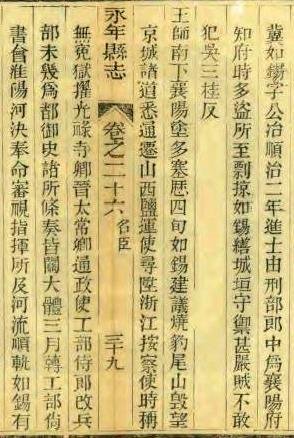 冀如錫字公冶順治二年進士由刑部郎中爲襄陽府
知府時多盜所至剽掠如錫繕城垣守禦甚嚴賊不敢
犯吳三桂反
王師南下襄陽塗多塞歷四旬如錫建議燒豹尾山毀望
京城諸道悉通遷山西鹽運使尋陞浙江按察使時稱
永年縣志 卷之二十六 名臣 三十九
無冤獄擢光祿寺卿晉太常卿通政使工部侍郎改兵
部未幾爲都御史諸所條奏皆關大體三月轉工部尙
書會淮陽河決奉命審視指揮所及河流順軌如錫有